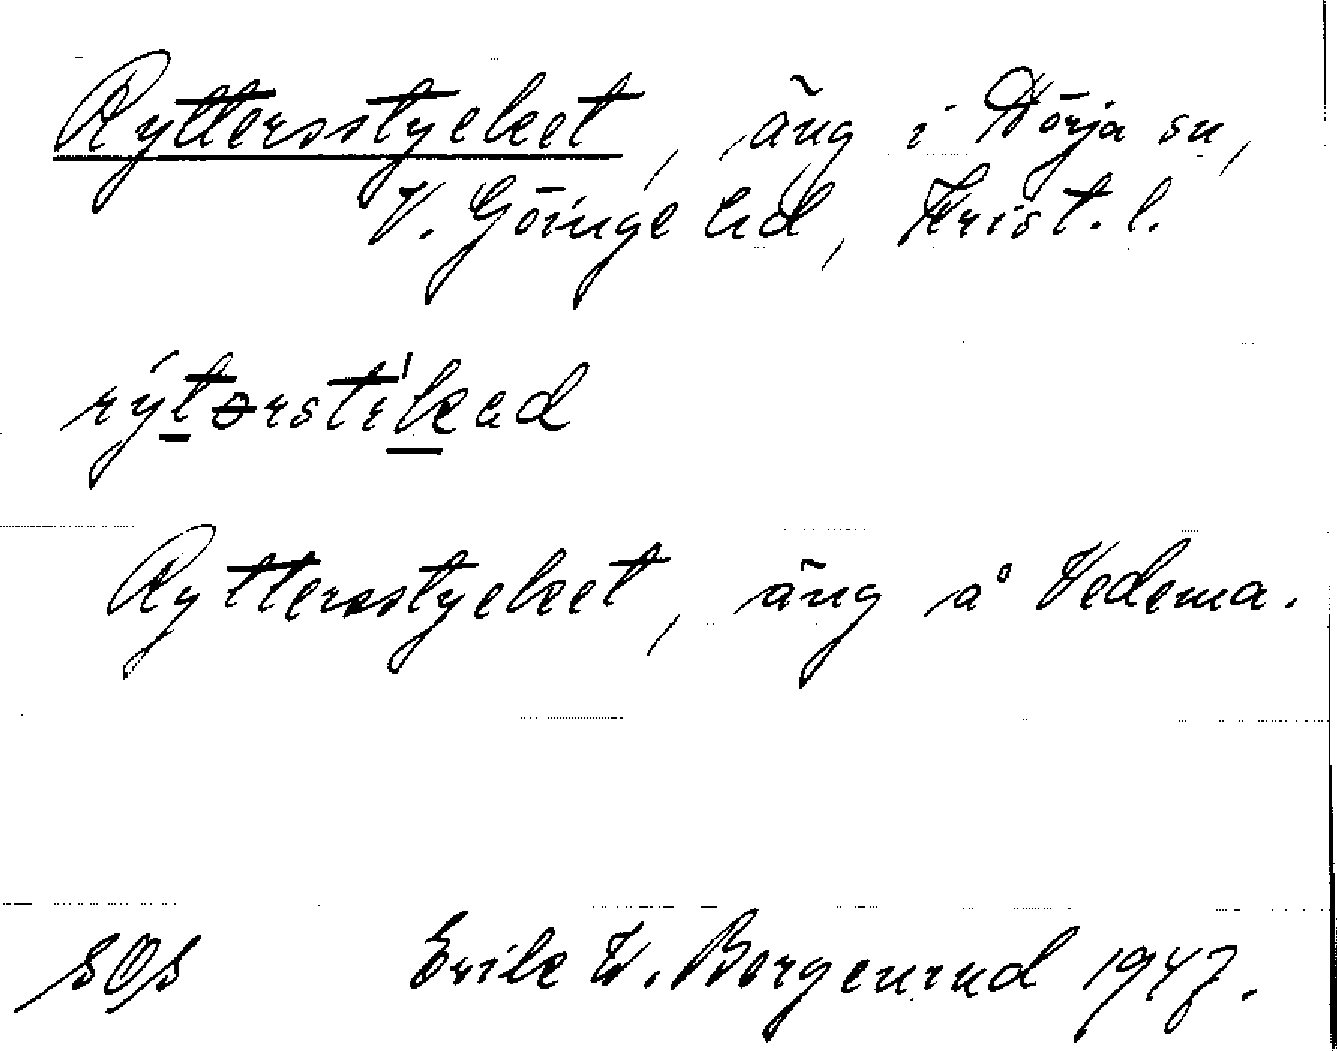 Ryttersstycket, äng i Nörja sn,
V. Göinge hd, Krist. l.
rýtərsti'kad
Ryttersstycket, äng å Vedema.
SOS Erik W. Borgenrud 1947.